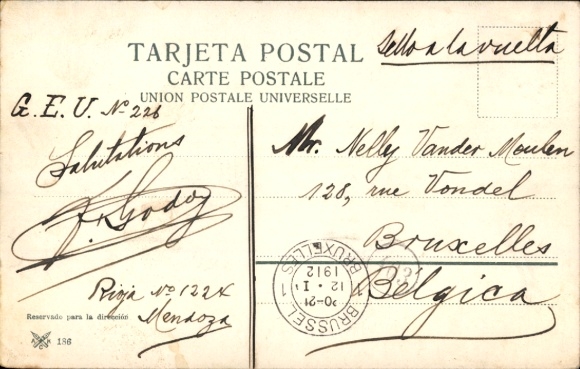 TARJETA POSTAL
CARTE POSTALE
UNION POSTALE UNIVERSELLE
Sello a la vuelta
G. E. U. Nº 226
Salutations
F. Godoy
Rioja Nº 1224
Mendoza
Reservado para la dirección
186
Mr. Nelly Vander Moulen
128, rue Vondel
Bruxelles
Belgica
BRUSSEL - BRUXELLES
20-21
12 · I
1912